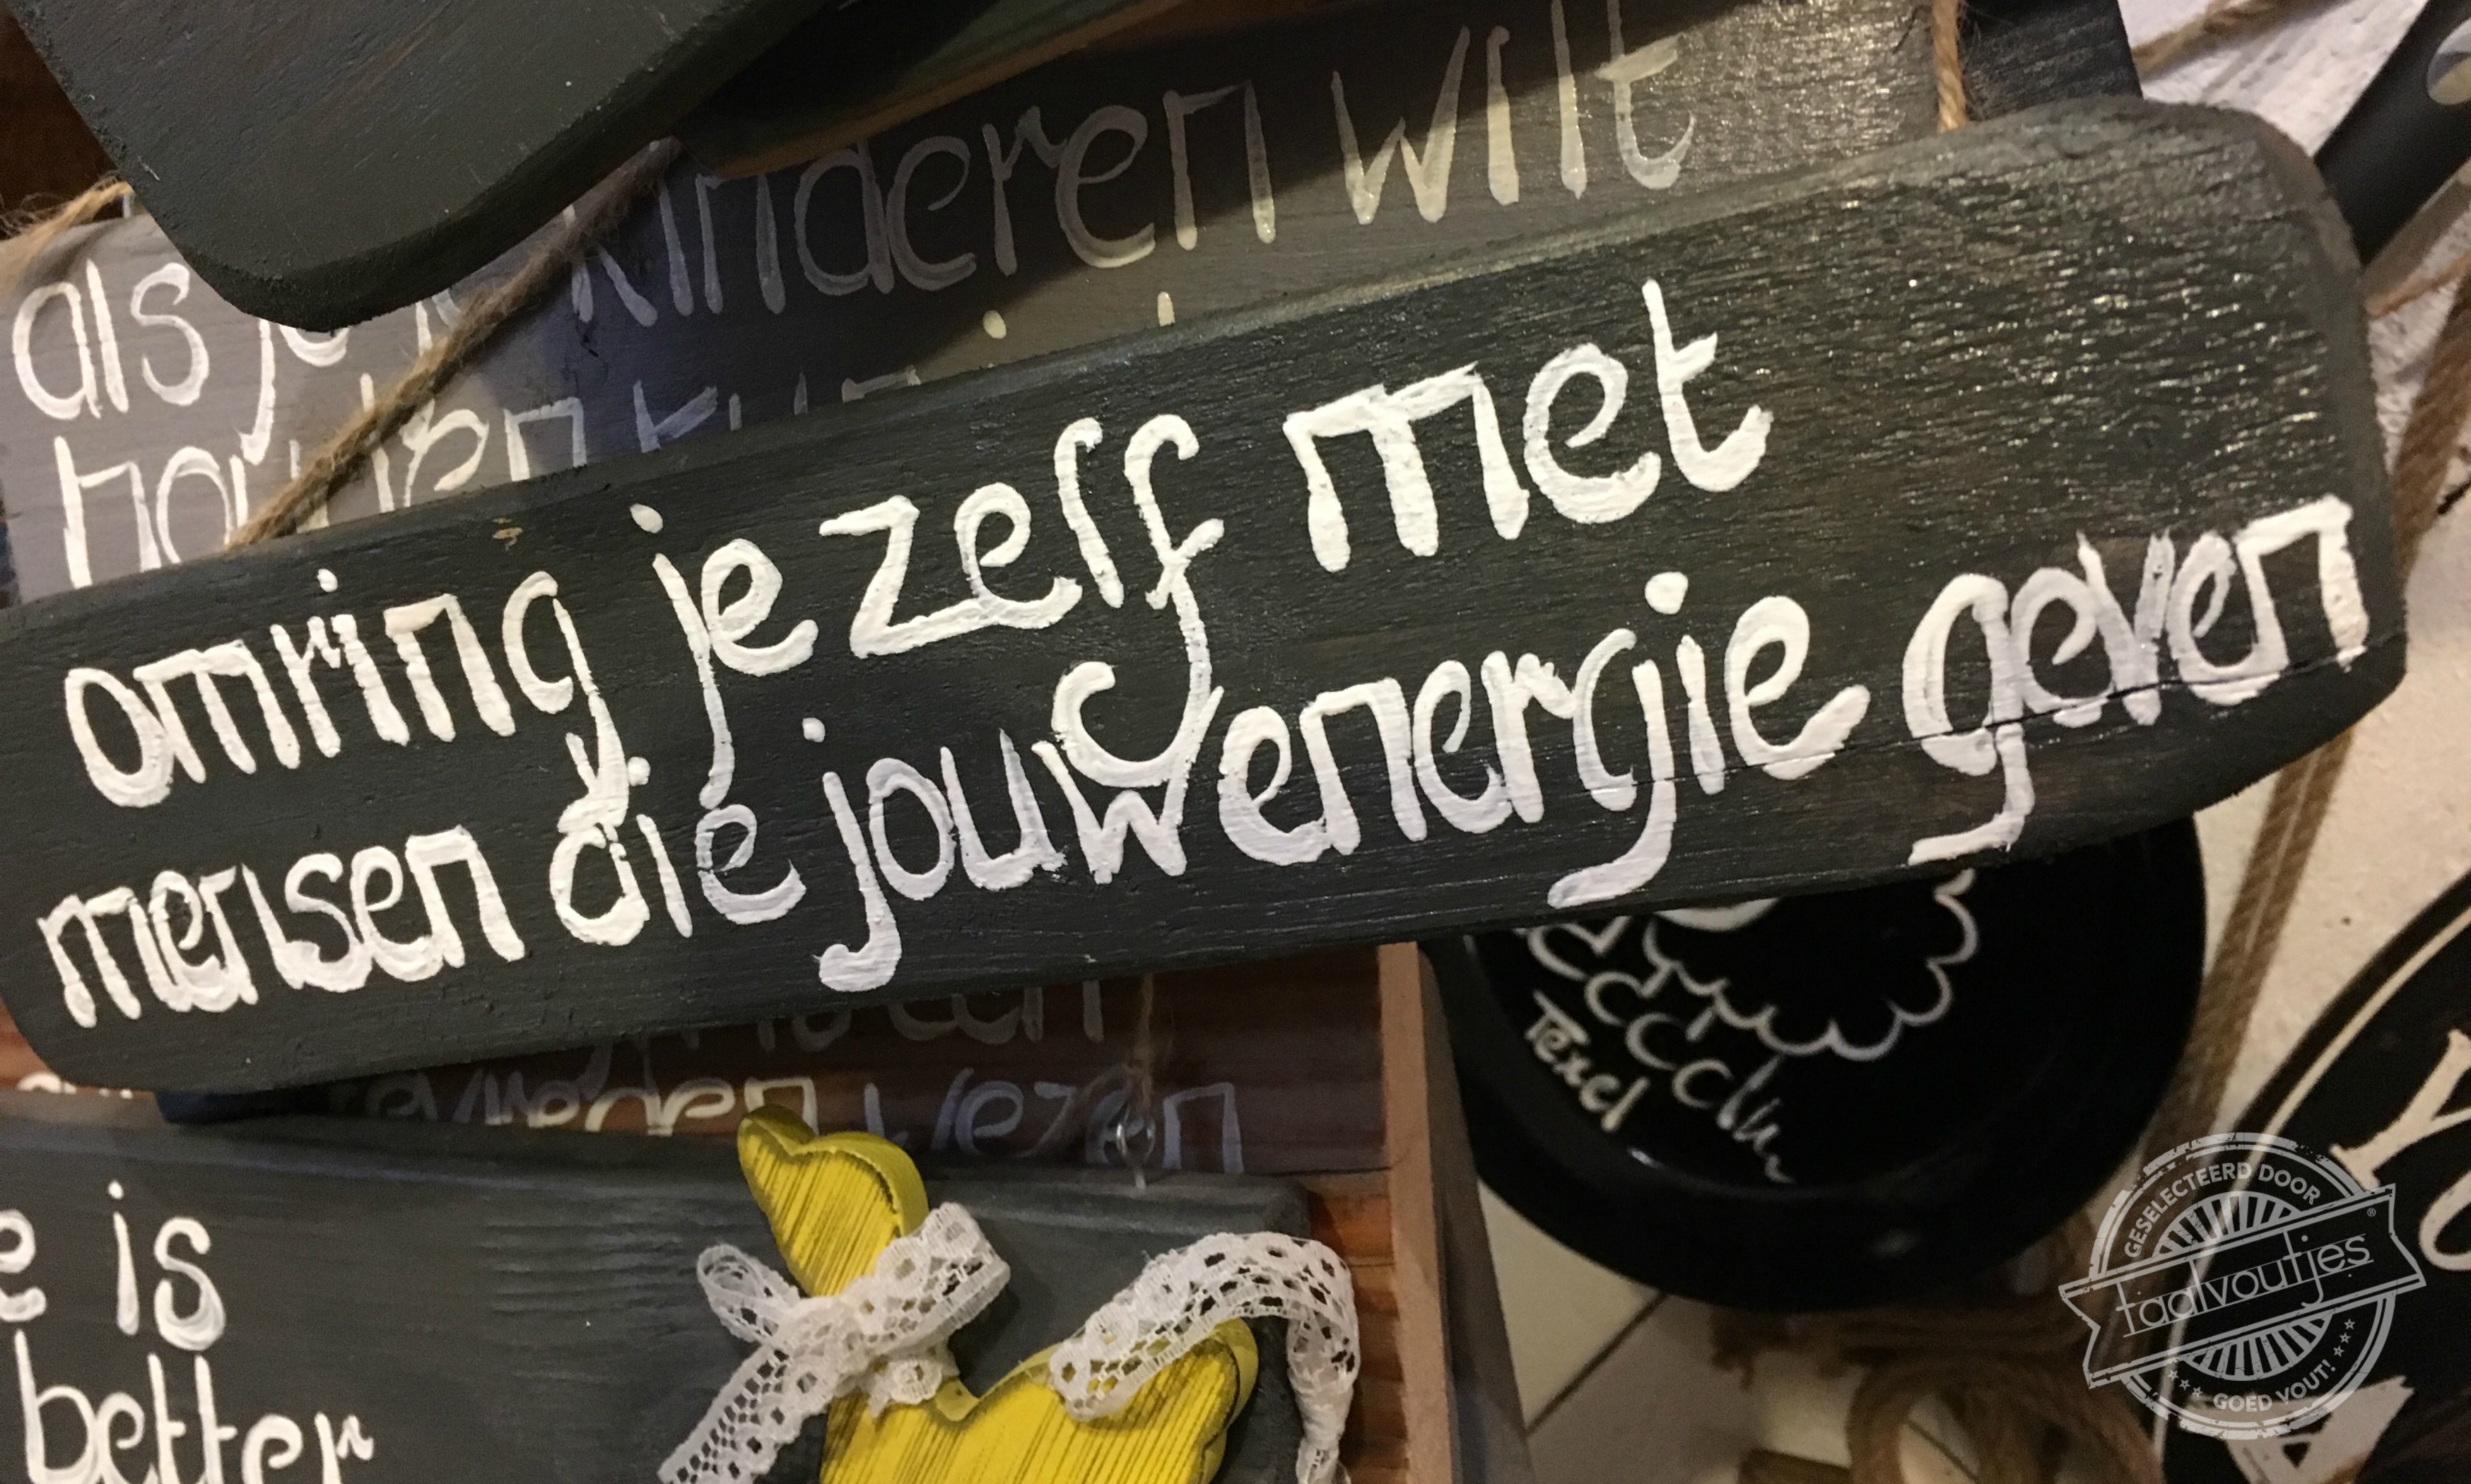 als je kinderen wilt
omring je zelf met
mensen die jouw energie geven
tevreden wezen
Texel
e is
better
GESELECTEERD DOOR
taalvoutjes
GOED VOUT!